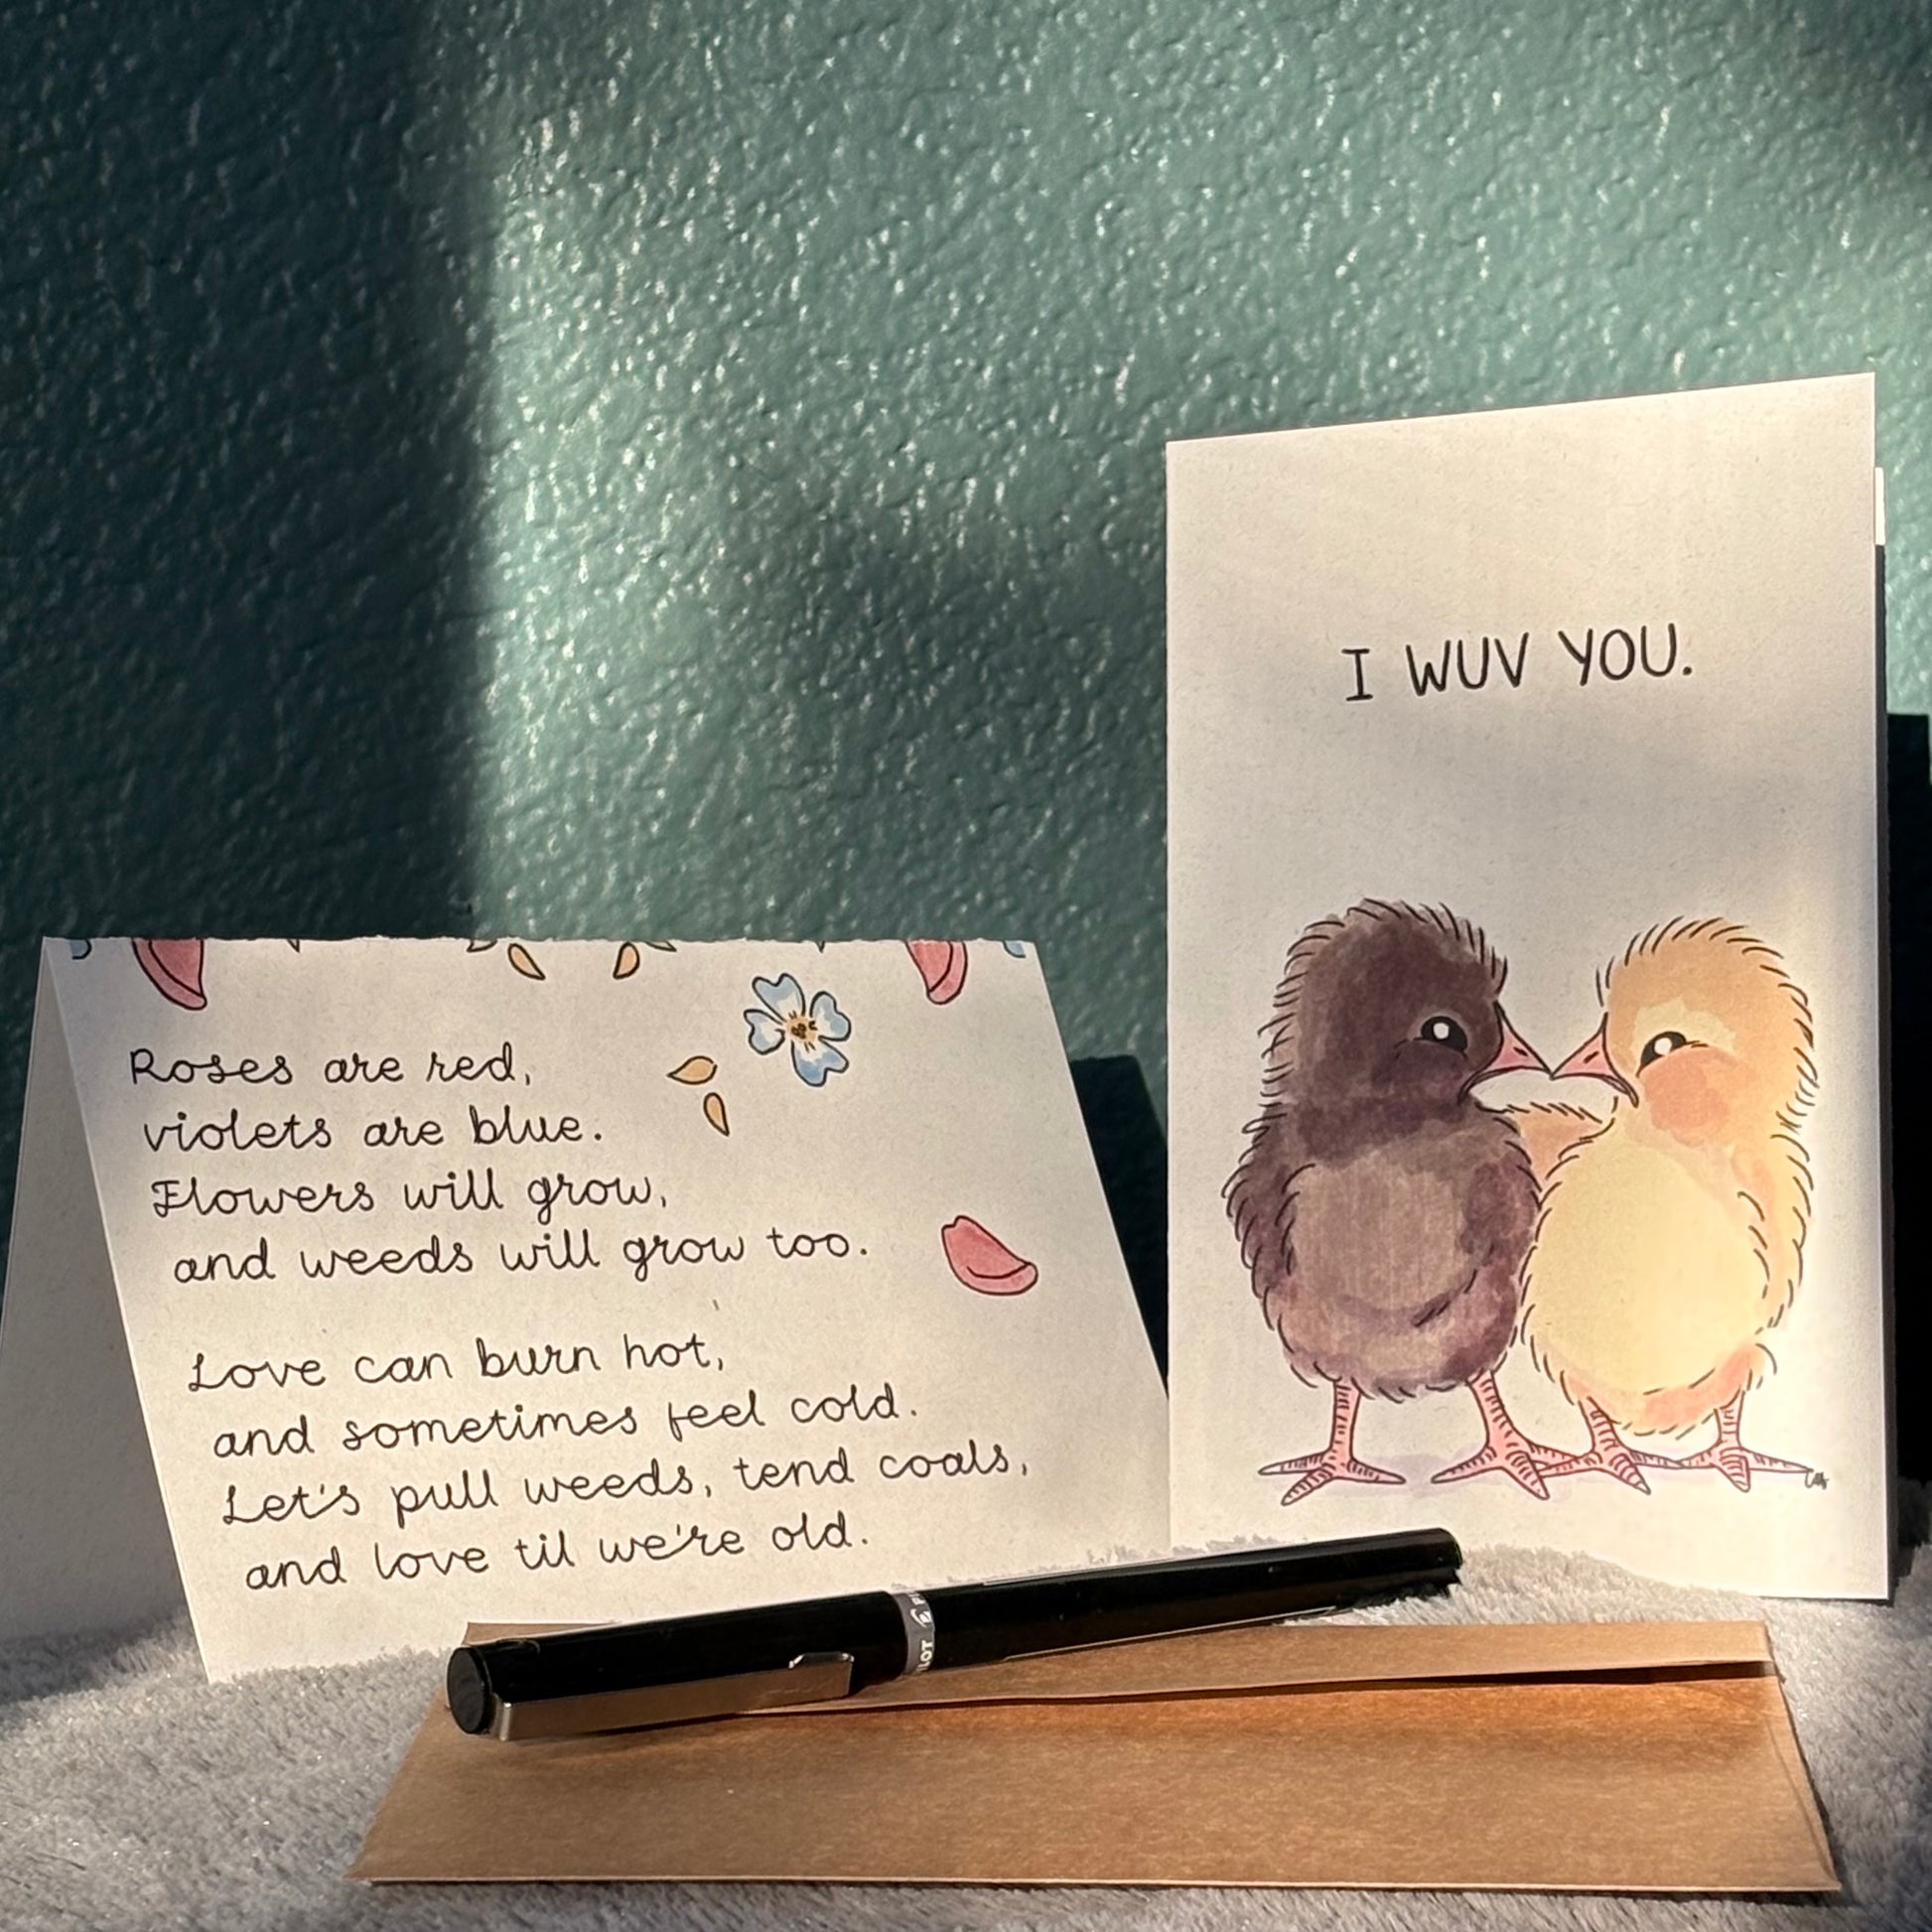 Roses are red,
violets are blue.
Flowers will grow,
and weeds will grow too.
Love can burn hot,
and sometimes feel cold.
Let's pull weeds, tend coals,
and love til we're old.
I WUV YOU.